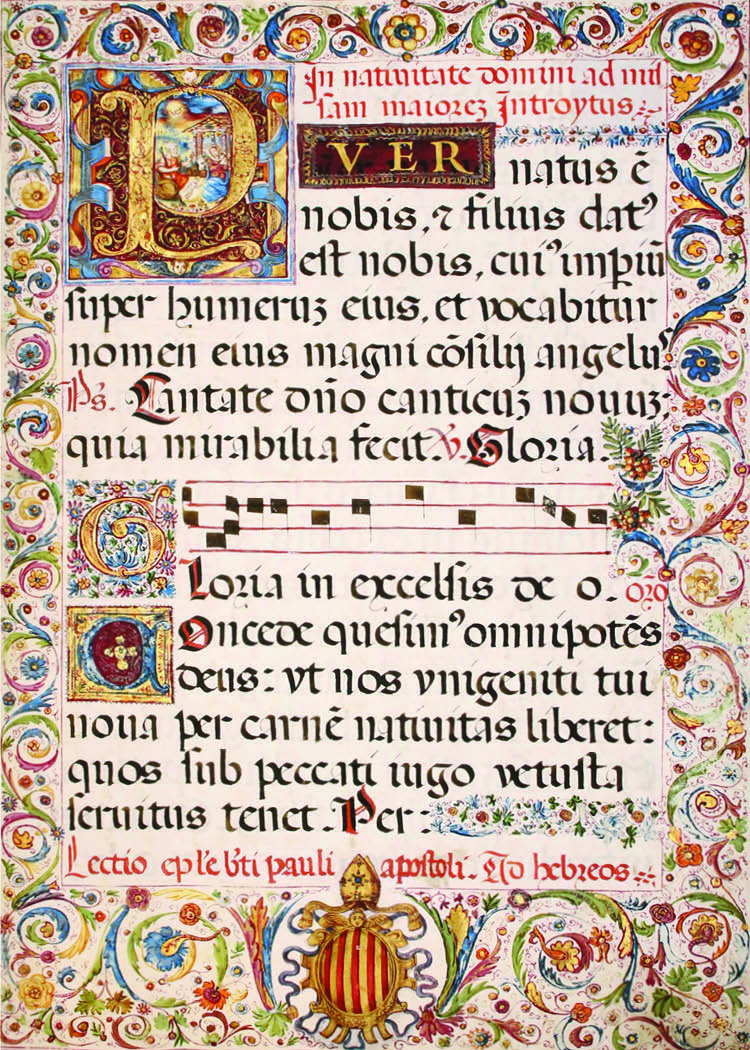 In natiuitate domini ad mis
sam maiorez Introytus
PVER natus ē
nobis, ⁊ filius datꝰ
est nobis, cuiꝰ imperiū
super humeruz eius, et vocabitur
nomen eius magni cōsilij angelus
Ps. Cantate dño canticuz nouuz
quia mirabilia fecit. V. Gloria.
GLoria in excelsis de o. oro
COncede quesimꝰ omnipotēs
deus: vt nos vnigeniti tui
noua per carnē natiuitas liberet:
quos sub peccati iugo vetusta
seruitus tenet. Per:
Lectio ep̄l'e b'ti pauli apostoli. Ad hebreos